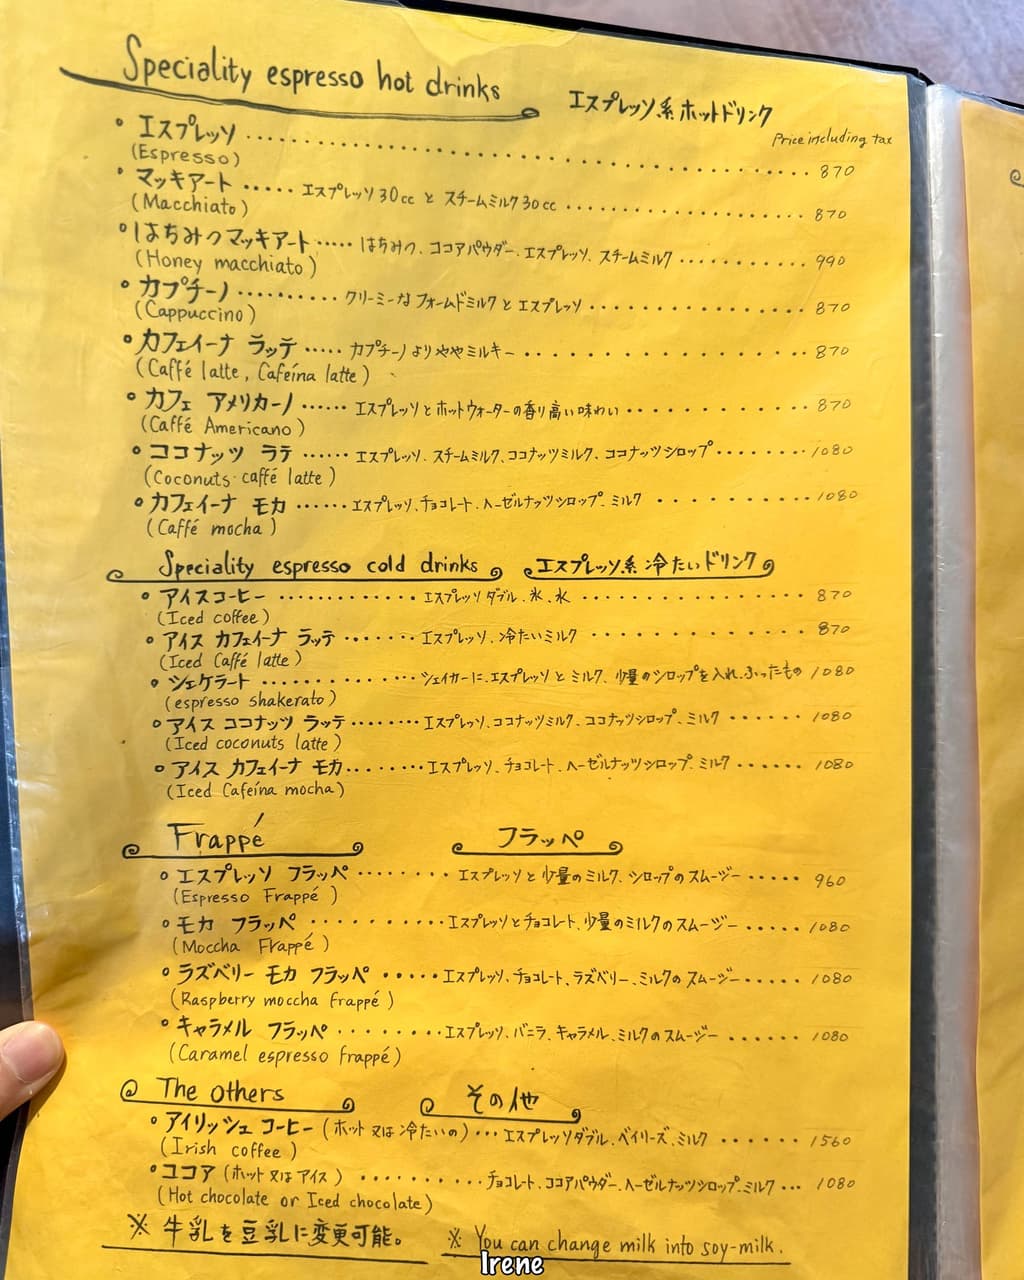 Speciality espresso hot drinks エスプレッソ系ホットドリンク
Price including tax
エスプレッソ 870
(Espresso)
マッキアート エスプレッソ30ccとスチームミルク30cc 870
(Macchiato)
はちみつマッキアート はちみつ、ココアパウダー、エスプレッソ、スチームミルク 990
(Honey macchiato)
カプチーノ クリーミーなフォームドミルクとエスプレッソ 870
(Cappuccino)
カフェイーナ ラッテ カプチーノよりややミルキー 870
(Caffé latte, Cafeína latte)
カフェ アメリカーノ エスプレッソとホットウォーターの香り高い味わい 870
(Caffé Americano)
ココナッツ ラテ エスプレッソ、スチームミルク、ココナッツミルク、ココナッツシロップ 1080
(Coconuts caffé latte)
カフェイーナ モカ エスプレッソ、チョコレート、ヘーゼルナッツシロップ、ミルク 1080
(Caffé mocha)
Speciality espresso cold drinks エスプレッソ系冷たいドリンク
アイスコーヒー エスプレッソダブル、氷、水 870
(Iced coffee)
アイス カフェイーナ ラッテ エスプレッソ、冷たいミルク 870
(Iced Caffé latte)
シェケラート シェイカーに、エスプレッソとミルク、少量のシロップを入れ、ふったもの 1080
(espresso shakerato)
アイス ココナッツ ラッテ エスプレッソ、ココナッツミルク、ココナッツシロップ、ミルク 1080
(Iced coconuts latte)
アイス カフェイーナ モカ エスプレッソ、チョコレート、ヘーゼルナッツシロップ、ミルク 1080
(Iced Cafeína mocha)
Frappé フラッペ
エスプレッソ フラッペ エスプレッソと少量のミルク、シロップのスムージー 960
(Espresso Frappé)
モカ フラッペ エスプレッソとチョコレート、少量のミルクのスムージー 1080
(Moccha Frappé)
ラズベリー モカ フラッペ エスプレッソ、チョコレート、ラズベリー、ミルクのスムージー 1080
(Raspberry moccha frappé)
キャラメル フラッペ エスプレッソ、バニラ、キャラメル、ミルクのスムージー 1080
(Caramel espresso frappé)
The others その他
アイリッシュ コーヒー (ホット又は冷たいの) エスプレッソダブル、ベイリーズ、ミルク 1560
(Irish coffee)
ココア (ホット又はアイス) チョコレート、ココアパウダー、ヘーゼルナッツシロップ、ミルク 1080
(Hot chocolate or Iced chocolate)
※ 牛乳を豆乳に変更可能。 ※ You can change milk into soy-milk.
Irene